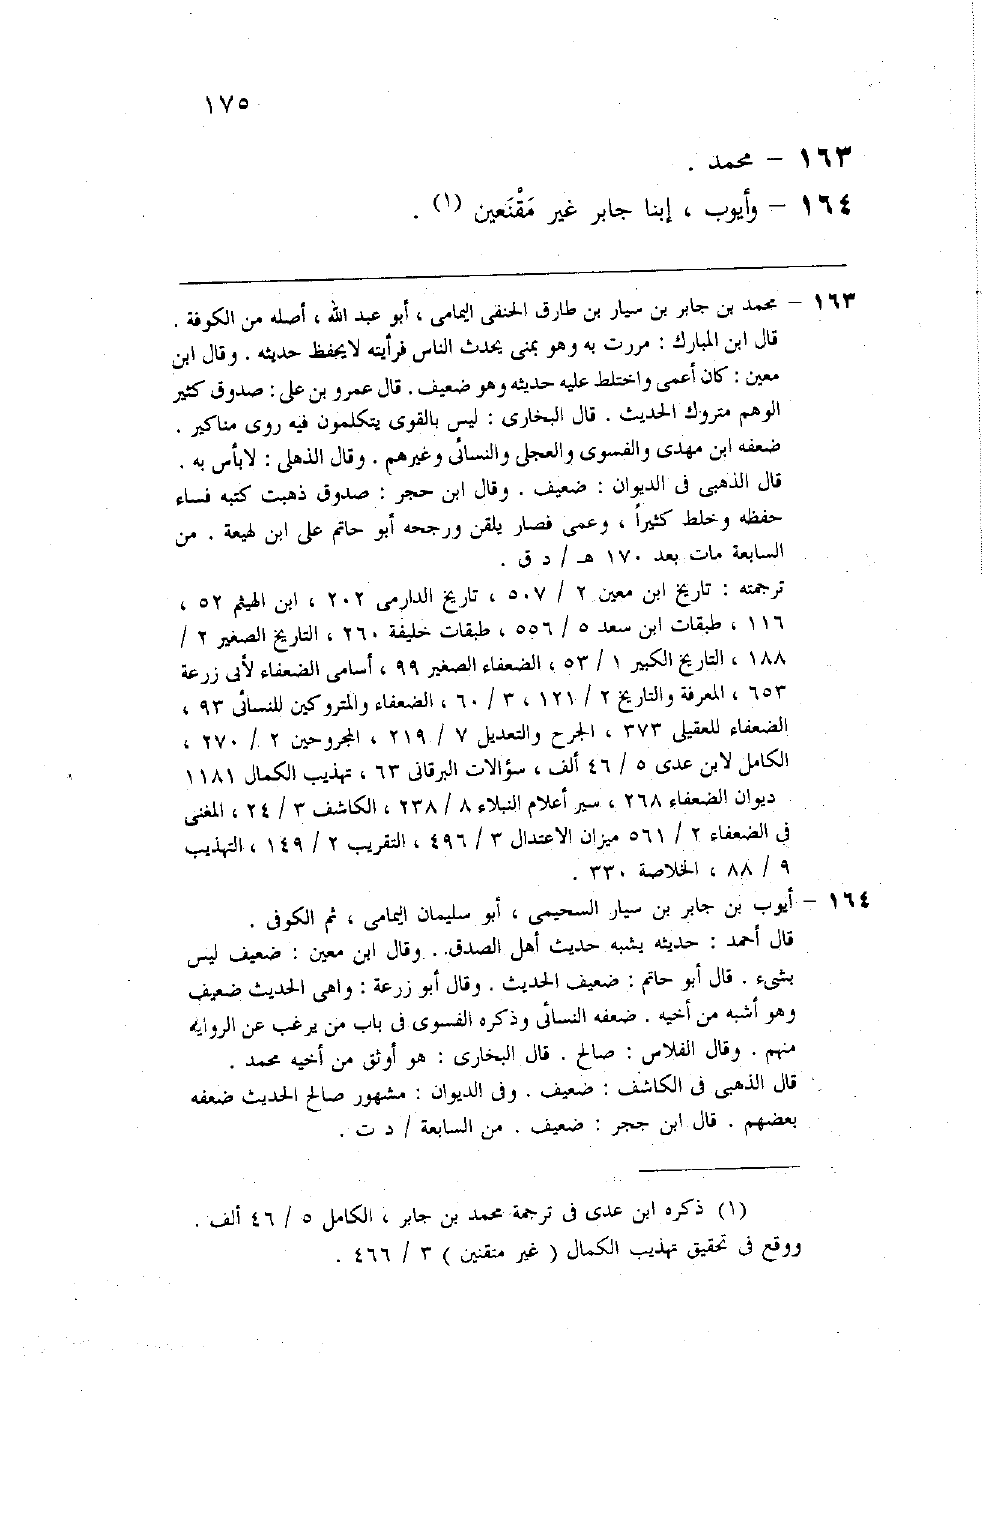 ١٧٥
١٦٣ – محمد .
١٦٤ – وأيوب ، إبنا جابر غير مَقْنَعين (١) .
١٦٣ – محمد بن جابر بن سيار بن طارق الحنفى اليمامى ، أبو عبد الله ، أصله من الكوفة .
قال ابن المبارك : مررت به وهو بمنى يحدث الناس فرأيته لايحفظ حديثه . وقال ابن
معين : كان أعمى واختلط عليه حديثه وهو ضعيف . قال عمرو بن على : صدوق كثير
الوهم متروك الحديث . قال البخارى : ليس بالقوى يتكلمون فيه روى مناكير .
ضعفه ابن مهدى والفسوى والعجلى والنسائى وغيرهم . وقال الذهلى : لابأس به .
قال الذهبى فى الديوان : ضعيف . وقال ابن حجر : صدوق ذهبت كتبه فساء
حفظه وخلط كثيراً ، وعمى فصار يلقن ورجحه أبو حاتم على ابن لهيعة . من
السابعة مات بعد ١٧٠ هـ / د ق .
ترجمته : تاريخ ابن معين ٢ / ٥٠٧ ، تاريخ الدارمى ٢٠٢ ، ابن الهيثم ٥٢ ،
١١٦ ، طبقات ابن سعد ٥ / ٥٥٦ ، طبقات خليفة ٢٦٠ ، التاريخ الصغير ٢ /
١٨٨ ، التاريخ الكبير ١ / ٥٣ ، الضعفاء الصغير ٩٩ ، أسامى الضعفاء لأبى زرعة
٦٥٣ ، المعرفة والتاريخ ٢ / ١٢١ ، ٣ / ٦٠ ، الضعفاء والمتروكين للنسائى ٩٣ ،
الضعفاء للعقيلى ٣٧٣ ، الجرح والتعديل ٧ / ٢١٩ ، المجروحين ٢ / ٢٧٠ ،
الكامل لابن عدى ٥ / ٤٦ ألف ، سؤالات البرقانى ٦٣ ، تهذيب الكمال ١١٨١
ديوان الضعفاء ٢٦٨ ، سير أعلام النبلاء ٨ / ٢٣٨ ، الكاشف ٣ / ٢٤ ، المغنى
فى الضعفاء ٢ / ٥٦١ ميزان الاعتدال ٣ / ٤٩٦ ، التقريب ٢ / ١٤٩ ، التهذيب
٩ / ٨٨ ، الخلاصة ٣٣٠ .
١٦٤ – أيوب بن جابر بن سيار السحيمى ، أبو سليمان اليمامى ، ثم الكوفى .
قال أحمد : حديثه يشبه حديث أهل الصدق . وقال ابن معين : ضعيف ليس
بشىء . قال أبو حاتم : ضعيف الحديث . وقال أبو زرعة : واهى الحديث ضعيف
وهو أشبه من أخيه . ضعفه النسائى وذكره الفسوى فى باب من يرغب عن الرواية
منهم . وقال الفلاس : صالح . قال البخارى : هو أوثق من أخيه محمد .
قال الذهبى فى الكاشف : ضعيف . وفى الديوان : مشهور صالح الحديث ضعفه
بعضهم . قال ابن حجر : ضعيف . من السابعة / د ت .
(١) ذكره ابن عدى فى ترجمة محمد بن جابر ، الكامل ٥ / ٤٦ ألف .
ووقع فى تحقيق تهذيب الكمال ( غير متقنين ) ٣ / ٤٦٦ .